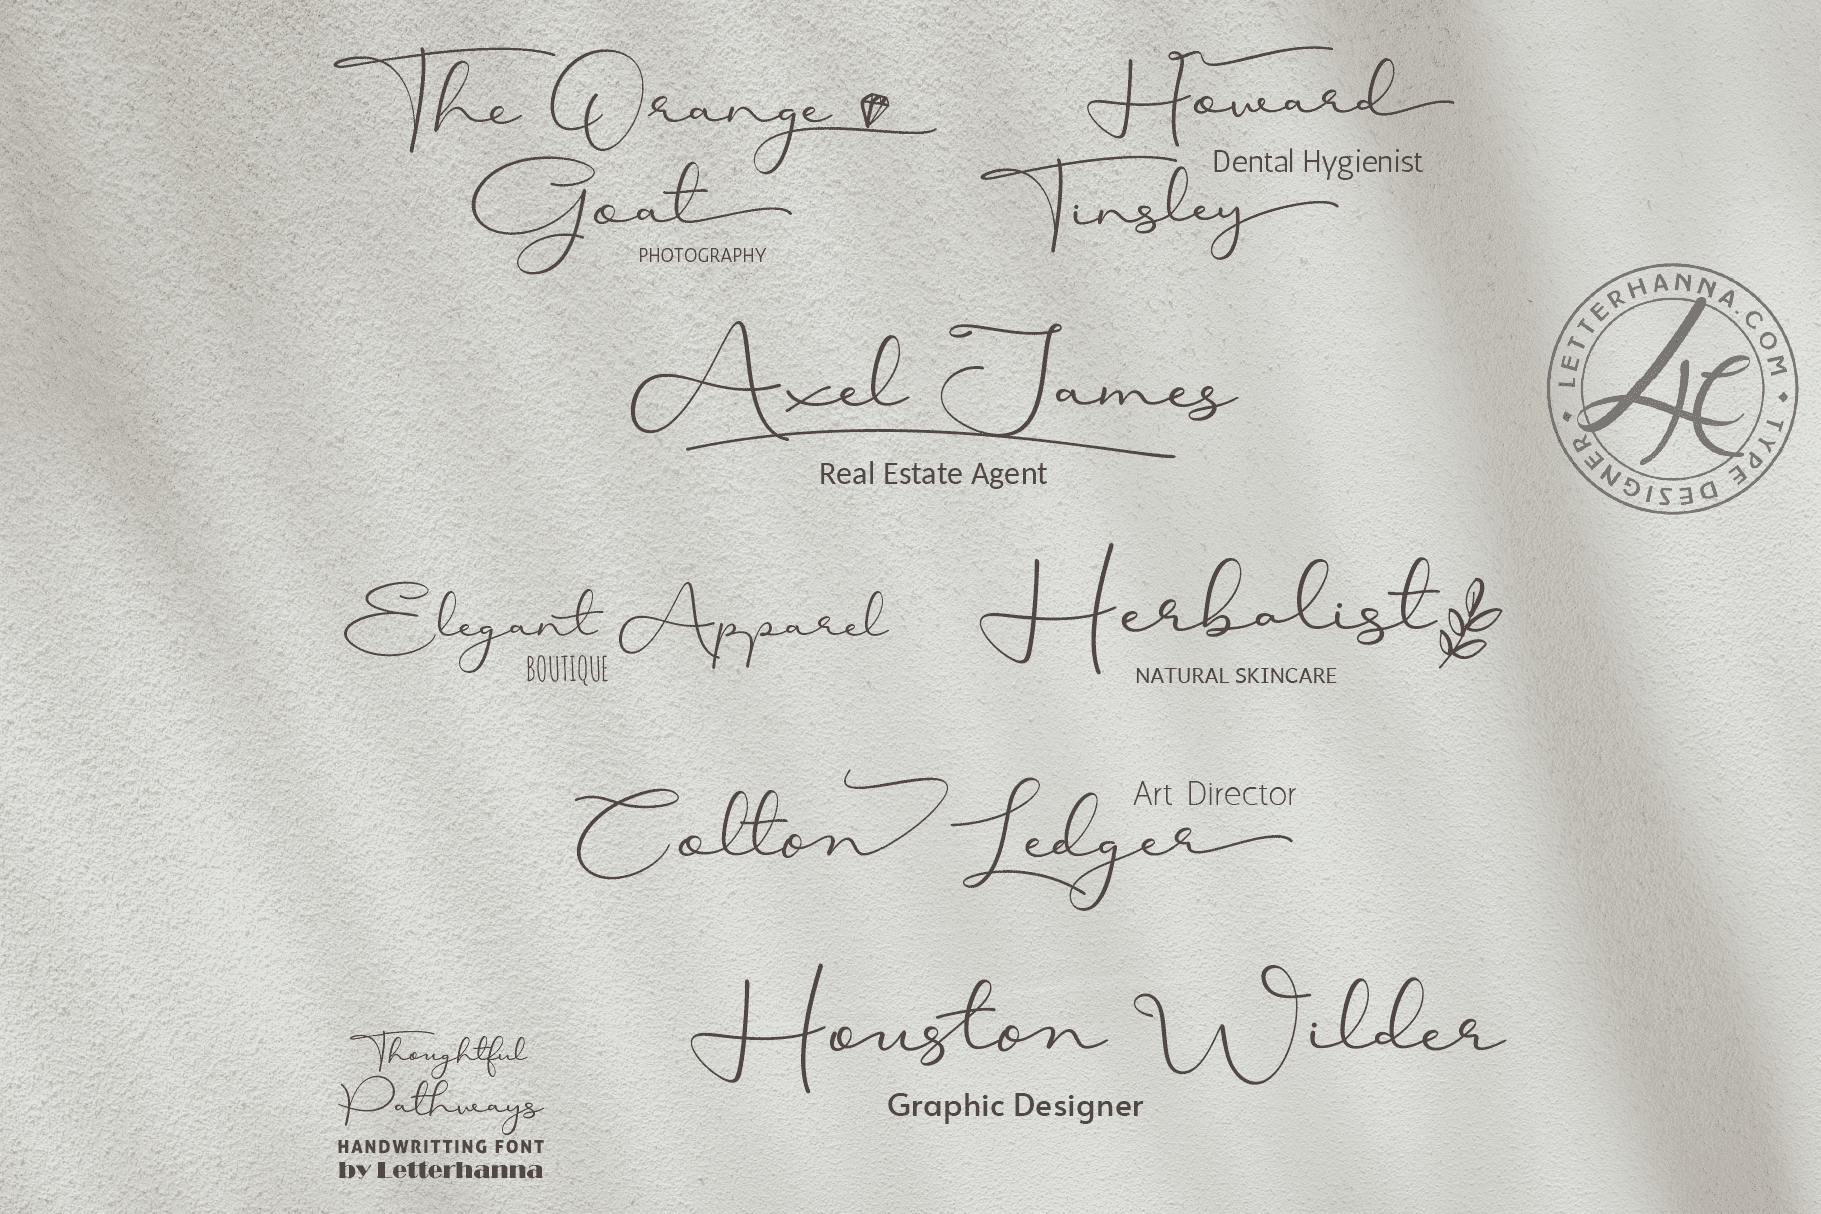 The Orange
Goat
PHOTOGRAPHY
Howard
Dental Hygienist
Tinsley
LETTERHANNA.COM • TYPE DESIGNER •
Axel James
Real Estate Agent
Elegant Apparel
BOUTIQUE
Herbalist
NATURAL SKINCARE
Colton Ledger
Art Director
Houston Wilder
Graphic Designer
Thoughtful
Pathways
HANDWRITTING FONT
by Letterhanna